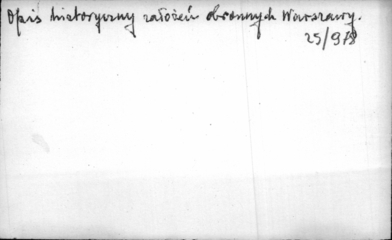 Opis historyczny założeń obronnych Warszawy.
25/978